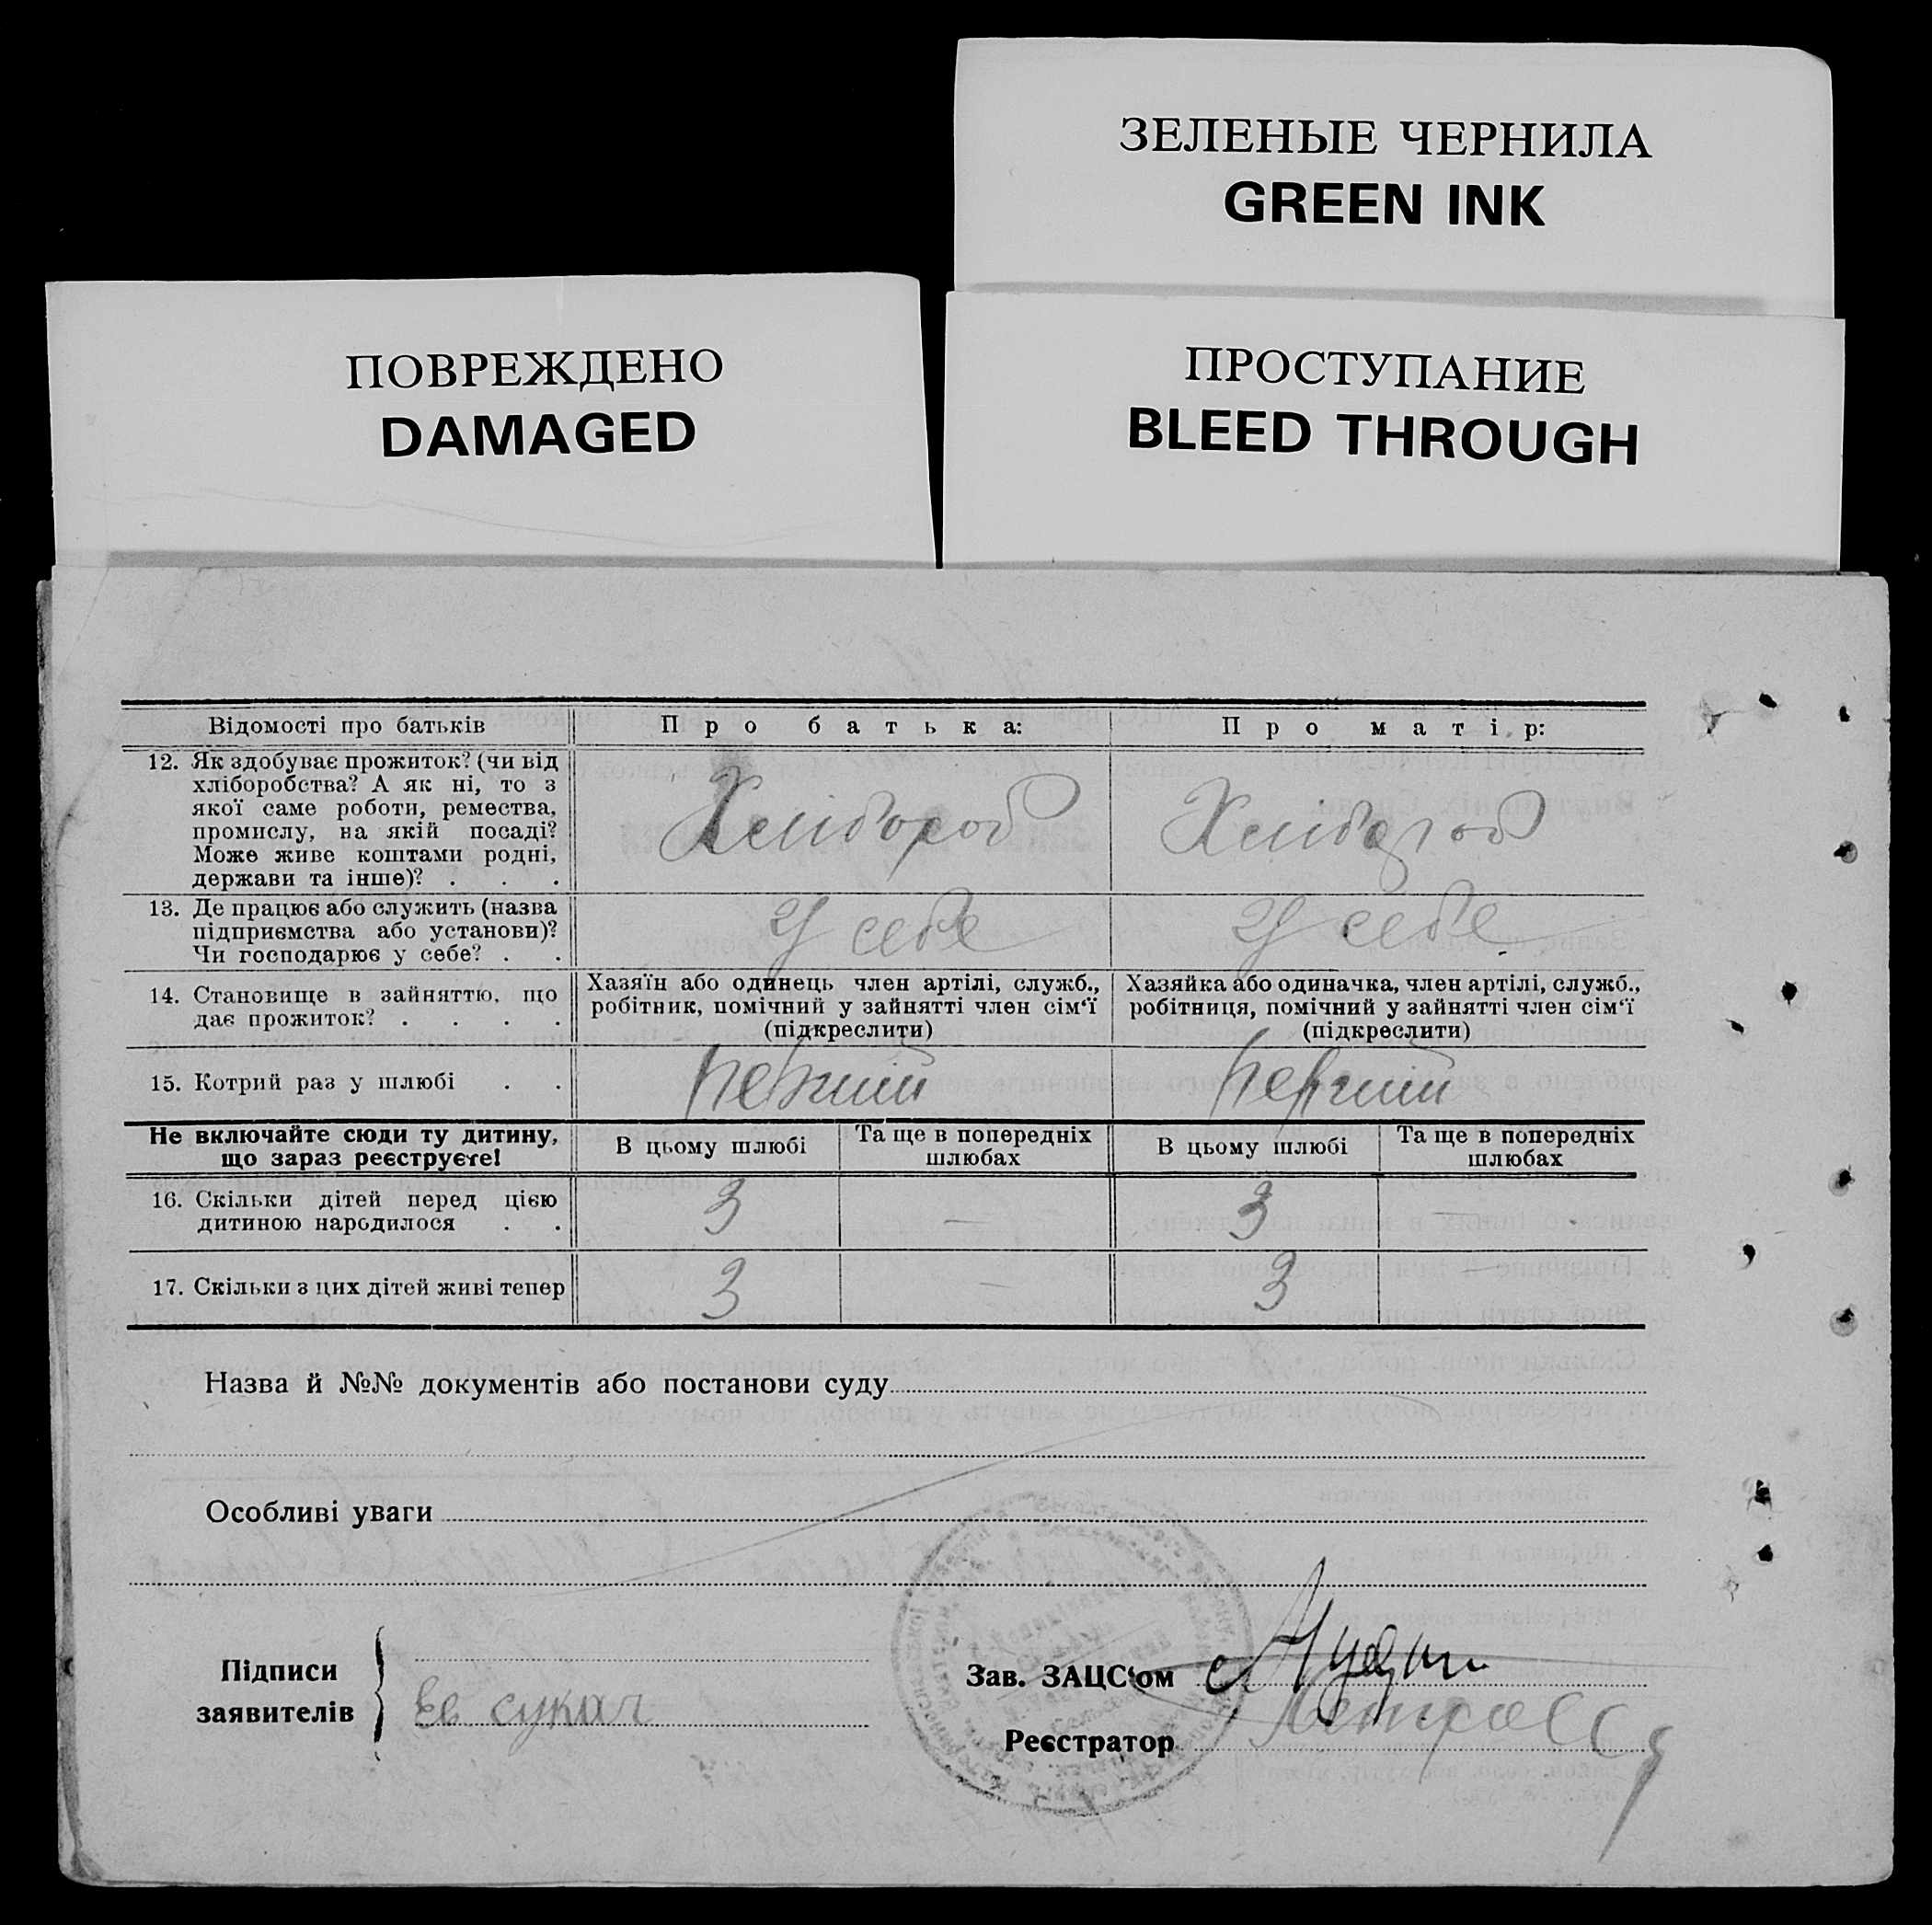 ЗЕЛЕНЫЕ ЧЕРНИЛА
GREEN INK
ПОВРЕЖДЕНО
DAMAGED
ПРОСТУПАНИЕ
BLEED THROUGH
Відомості про батьків
Про батька:
Про матір:
12. Як здобуває прожиток? (чи від
хліборобства? А як ні, то з
якої саме роботи, ремества,
промислу, на якій посаді?
Може живе коштами родні,
держави та інше)? . . .
Хлібороб
Хлібороб
13. Де працює або служить (назва
підприємства або установи)?
Чи господарює у себе? . .
У себе
У себе
14. Становище в зайняттю, що
дає прожиток? . . . .
Хазяїн або одинець член артілі, служб.,
робітник, помічний у зайнятті член сім'ї
(підкреслити)
Хазяйка або одиначка, член артілі, служб.,
робітниця, помічний у зайнятті член сім'ї
(підкреслити)
15. Котрий раз у шлюбі . .
Перший
Перший
Не включайте сюди ту дитину,
що зараз реєструєте!
В цьому шлюбі
Та ще в попередніх
шлюбах
В цьому шлюбі
Та ще в попередніх
шлюбах
16. Скільки дітей перед цією
дитиною народилося . .
3
—
3
—
17. Скільки з цих дітей живі тепер
3
—
3
—
Назва й №№ документів або постанови суду
Особливі уваги
Підписи
заявителів
сукач
Зав. ЗАЦС'ом
Реєстратор